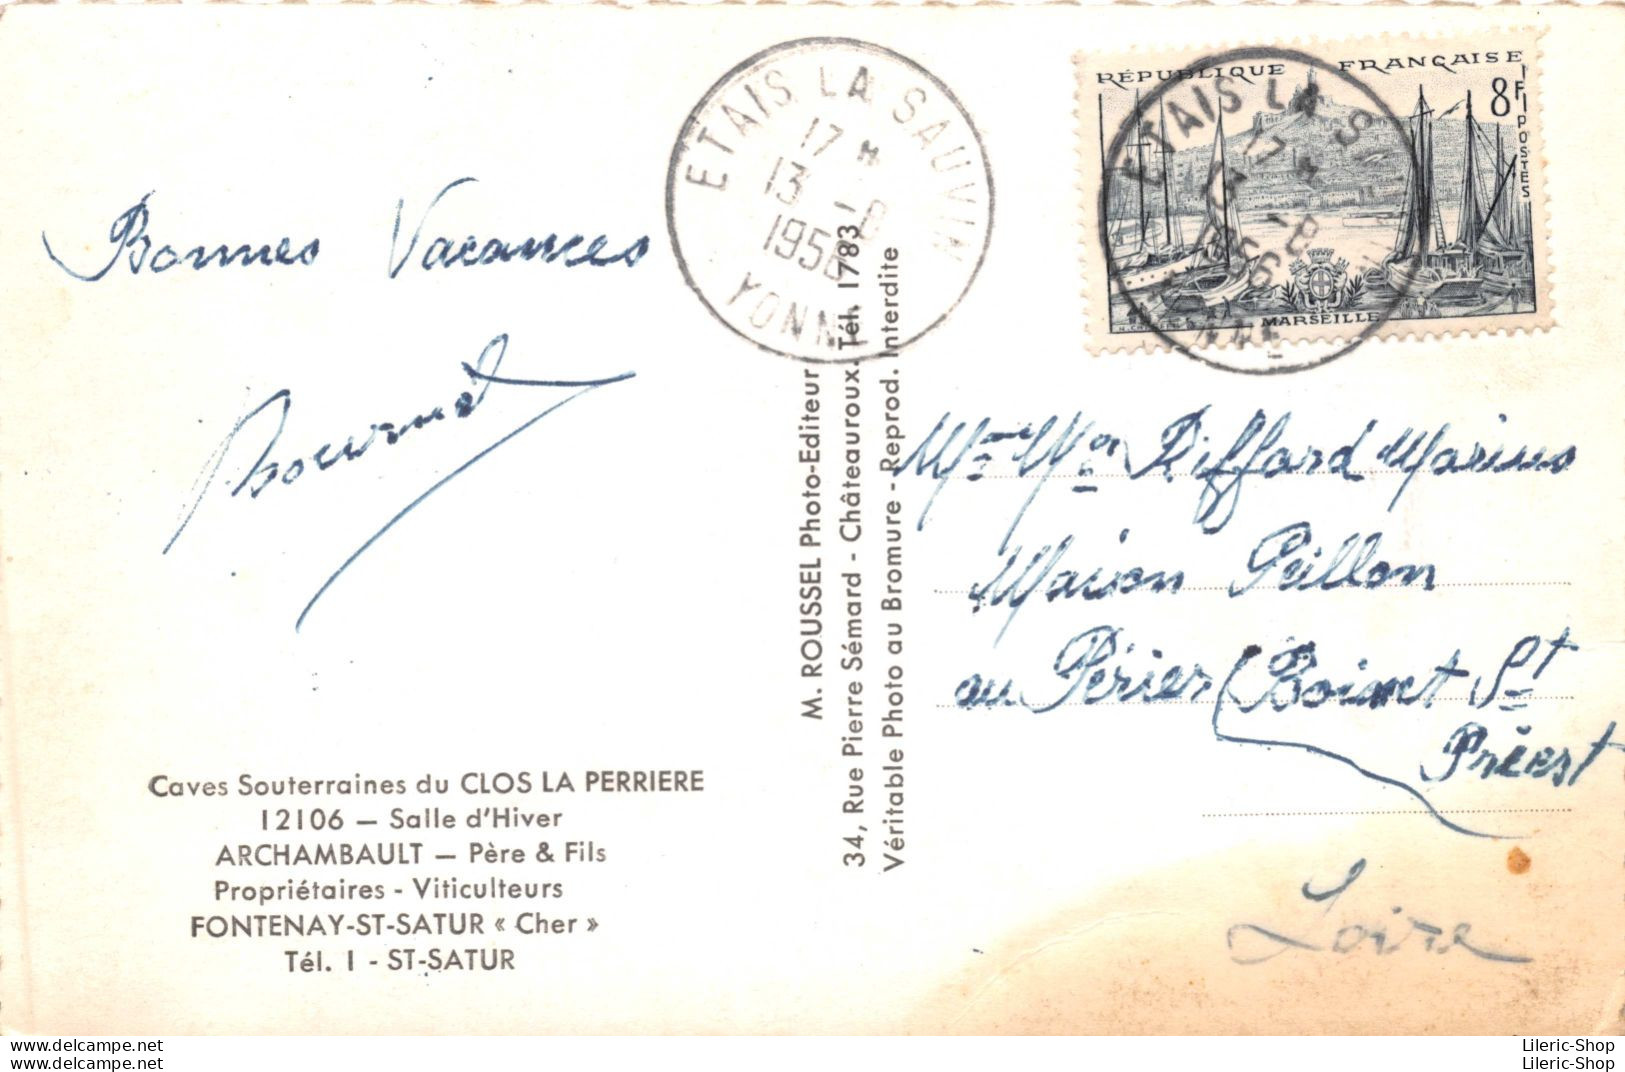 Bonnes Vacances
Bournat
Caves Souterraines du CLOS LA PERRIERE
12106 — Salle d'Hiver
ARCHAMBAULT — Père & Fils
Propriétaires - Viticulteurs
FONTENAY-ST-SATUR « Cher »
Tél. 1 - ST-SATUR
M. ROUSSEL Photo-Editeur
34, Rue Pierre Sémard - Châteauroux. Tél. 1783
Véritable Photo au Bromure - Reprod. Interdite
ETAIS LA SAUVIN
17 H
13 - 8
1956
YONNE
RÉPUBLIQUE FRANÇAISE
8F
POSTES
MARSEILLE
ETAIS LA S
17 H
13 - 8
1956
Mr Mme Riffard Marius
Maison Peillon
au Périer (Boisset St
Priest
Loire
www.delcampe.net
www.delcampe.net
Lileric-Shop
Lileric-Shop